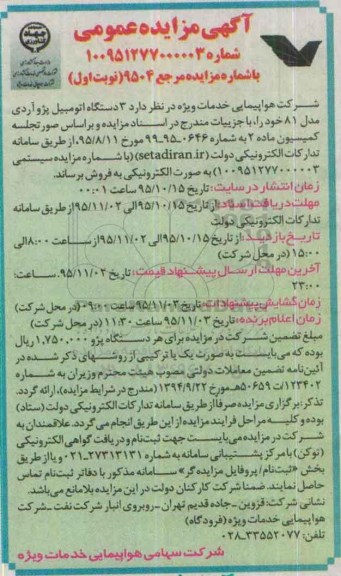 آگهی مزایده عمومی
شماره ۱۰۰۹۵۱۲۷۷۰۰۰۰۰۳
با شماره مزایده مرجع ۹۵۰۴ (نوبت اول)
شرکت هواپیمایی خدمات ویژه در نظر دارد ۳ دستگاه اتومبیل پژو آردی
مدل ۸۱ خود را، با جزییات مندرج در اسناد مزایده و براساس صورتجلسه
کمیسیون ماده ۲ به شماره ۰۶۴۶-۹۵-۹۹ مورخ ۹۵/۸/۱۱، از طریق سامانه
تدارکات الکترونیکی دولت (setadiran.ir) (با شماره مزایده سیستمی
۱۰۰۹۵۱۲۷۷۰۰۰۰۰۳) به صورت الکترونیکی به فروش برساند.
زمان انتشار در سایت: تاریخ ۹۵/۱۰/۱۵ ساعت ۰۰:۰۱
مهلت دریافت اسناد: از تاریخ ۹۵/۱۰/۱۵ الی ۹۵/۱۱/۰۲ از طریق سامانه
تدارکات الکترونیکی دولت
تاریخ بازدید: از تاریخ ۹۵/۱۰/۱۵ الی ۹۵/۱۱/۰۲ از ساعت ۸:۰۰ الی
۱۵:۰۰ (در محل شرکت)
آخرین مهلت ارسال پیشنهاد قیمت: تاریخ ۹۵/۱۱/۰۲ ساعت:
۲۳:۰۰
زمان گشایش پیشنهادات: تاریخ ۹۵/۱۱/۰۳ ساعت ۰۹:۰۰ (در محل شرکت)
زمان اعلام برنده: تاریخ ۹۵/۱۱/۰۳ ساعت ۱۱:۳۰ (در محل شرکت)
مبلغ تضمین شرکت در مزایده برای هر دستگاه پژو ۱,۷۵۰,۰۰۰ ریال
بوده که می‌بایست به صورت یک یا ترکیبی از روشهای ذکر شده در
آئین‌نامه تضمین معاملات دولتی مصوب هیئت محترم وزیران به شماره
۱۲۳۴۰۲/ت۵۰۶۵۹هـ مورخ ۱۳۹۴/۹/۲۲ (مندرج در شرایط مزایده)، ارائه گردد.
تذکر: برگزاری مزایده صرفا از طریق سامانه تدارکات الکترونیکی دولت (ستاد)
بوده و کلیه مراحل فرایند مزایده از این طریق انجام می‌گردد. علاقمندان به
شرکت در مزایده می‌بایست جهت ثبت‌نام و دریافت گواهی الکترونیکی
(توکن) با مرکز پشتیبانی سامانه به شماره ۲۷۳۱۳۱۳۱-۰۲۱ و یا از طریق
بخش «ثبت‌نام/ پروفایل مزایده‌گر» سامانه مذکور با دفاتر ثبت‌نام تماس
حاصل نمایند. ضمنا شرکت کارکنان دولت در این مزایده بلامانع می‌باشد.
نشانی شرکت: قزوین - جاده قدیم تهران - روبروی انبار شرکت نفت - شرکت
هواپیمایی خدمات ویژه (فرودگاه)
تلفن: ۳۳۵۵۲۰۷۷-۰۲۸
شرکت سهامی هواپیمایی خدمات ویژه